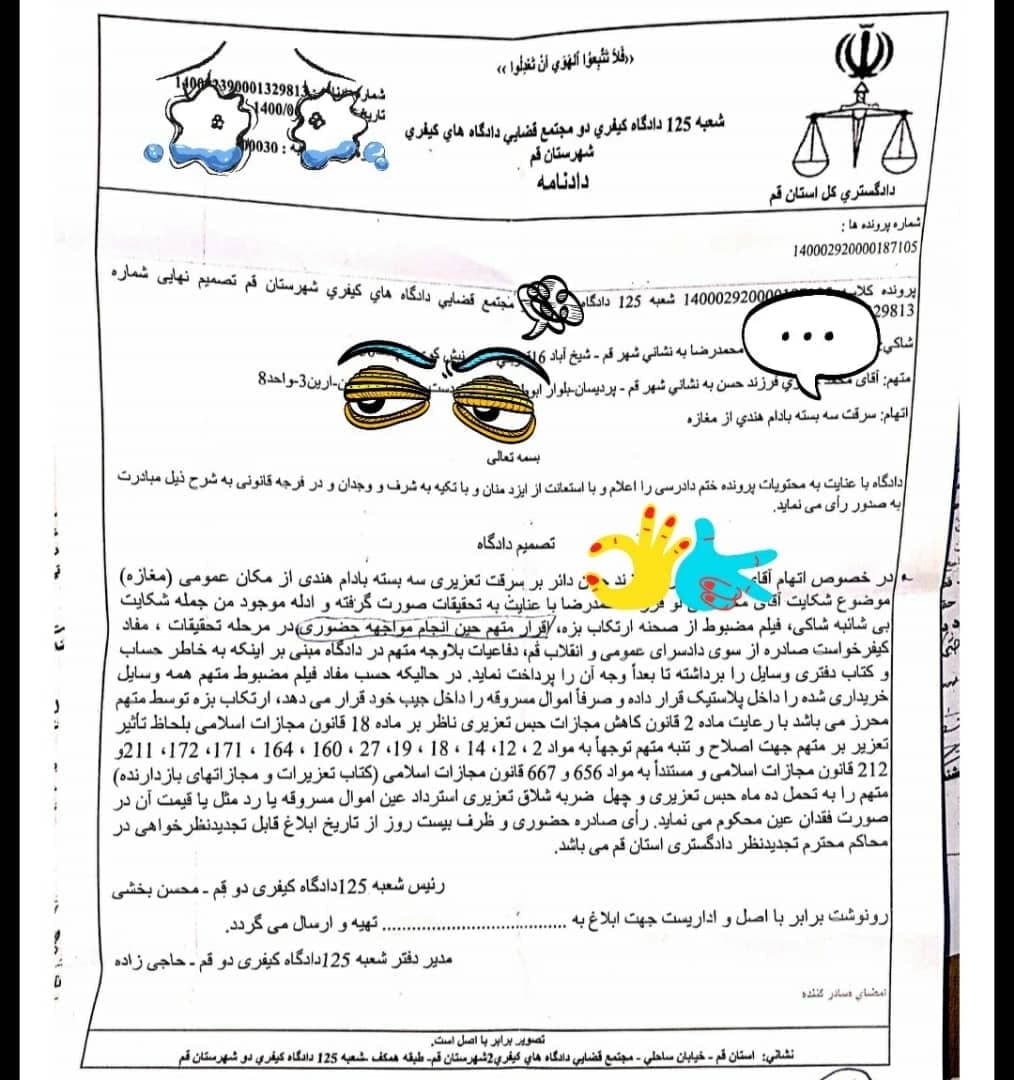 «فَلاَ تَتَّبِعُوا اَلْهَوَي أَنْ تَعْدِلُوا»
140002390001329813
تاریخ 1400/0
0030 :
شعبه 125 دادگاه كيفري دو مجتمع قضايي دادگاه هاي كيفري
شهرستان قم
دادنامه
دادگستري كل استان قم
شماره پرونده ها :
140002920000187105
پرونده 14000292000 شعبه 125 مجتمع قضايي دادگاه هاي كيفري شهرستان قم تصميم نهايي شماره
29813
شاكي: محمدرضا به نشاني شهر قم - شيخ آباد
متهم: آقای فرزند حسن به نشاني شهر قم - پرديسان-بلوار آرين3-واحد8
اتهام: سرقت سه بسته بادام هندي از مغازه
بسمه تعالی
دادگاه با عنایت به محتویات پرونده ختم دادرسی را اعلام و با استعانت از ایزد منان و با تکیه به شرف و وجدان و در فرجه قانونی به شرح ذیل مبادرت
به صدور رأی می نماید.
تصمیم دادگاه
در خصوص اتهام آقای دائر بر سرقت تعزیری سه بسته بادام هندی از مکان عمومی (مغازه)
موضوع شکایت آقای با عنایت به تحقیقات صورت گرفته و ادله موجود من جمله شکایت
بی شائبه شاکی، فیلم مضبوط از صحنه ارتکاب بزه، اقرار متهم حین انجام مواجهه حضوری در مرحله تحقیقات ، مفاد
کیفرخواست صادره از سوی دادسرای عمومی و انقلاب قم، دفاعیات بلاوجه متهم در دادگاه مبنی بر اینکه به خاطر حساب
و کتاب دفتری وسایل را برداشته تا بعداً وجه آن را پرداخت نماید. در حالیکه حسب مفاد فیلم مضبوط متهم همه وسایل
خریداری شده را داخل پلاستیک قرار داده و صرفاً اموال مسروقه را داخل جیب خود قرار می دهد، ارتکاب بزه توسط متهم
محرز می باشد با رعایت ماده 2 قانون کاهش مجازات حبس تعزیری ناظر بر ماده 18 قانون مجازات اسلامی بلحاظ تأثیر
تعزیر بر متهم جهت اصلاح و تنبه متهم توجهاً به مواد 2 ، 12، 14 ، 18 ، 19، 27 ، 160 ، 164 ، 171، 172، 211و
212 قانون مجازات اسلامی و مستنداً به مواد 656 و 667 قانون مجازات اسلامی (کتاب تعزیرات و مجازاتهای بازدارنده)
متهم را به تحمل ده ماه حبس تعزیری و چهل ضربه شلاق تعزیری استرداد عین اموال مسروقه یا رد مثل یا قیمت آن در
صورت فقدان عین محکوم می نماید. رأی صادره حضوری و ظرف بیست روز از تاریخ ابلاغ قابل تجدیدنظرخواهی در
محاکم محترم تجدیدنظر دادگستری استان قم می باشد.
رئیس شعبه 125دادگاه کیفری دو قم - محسن بخشی
رونوشت برابر با اصل و اداریست جهت ابلاغ به .................................... تهیه و ارسال می گردد.
مدیر دفتر شعبه 125دادگاه کیفری دو قم - حاجی زاده
امضای صادر کننده
تصوير برابر با اصل است.
نشاني: استان قم - خيابان ساحلي - مجتمع قضايي دادگاه هاي كيفري2شهرستان قم- طبقه همكف -شعبه 125 دادگاه كيفري دو شهرستان قم